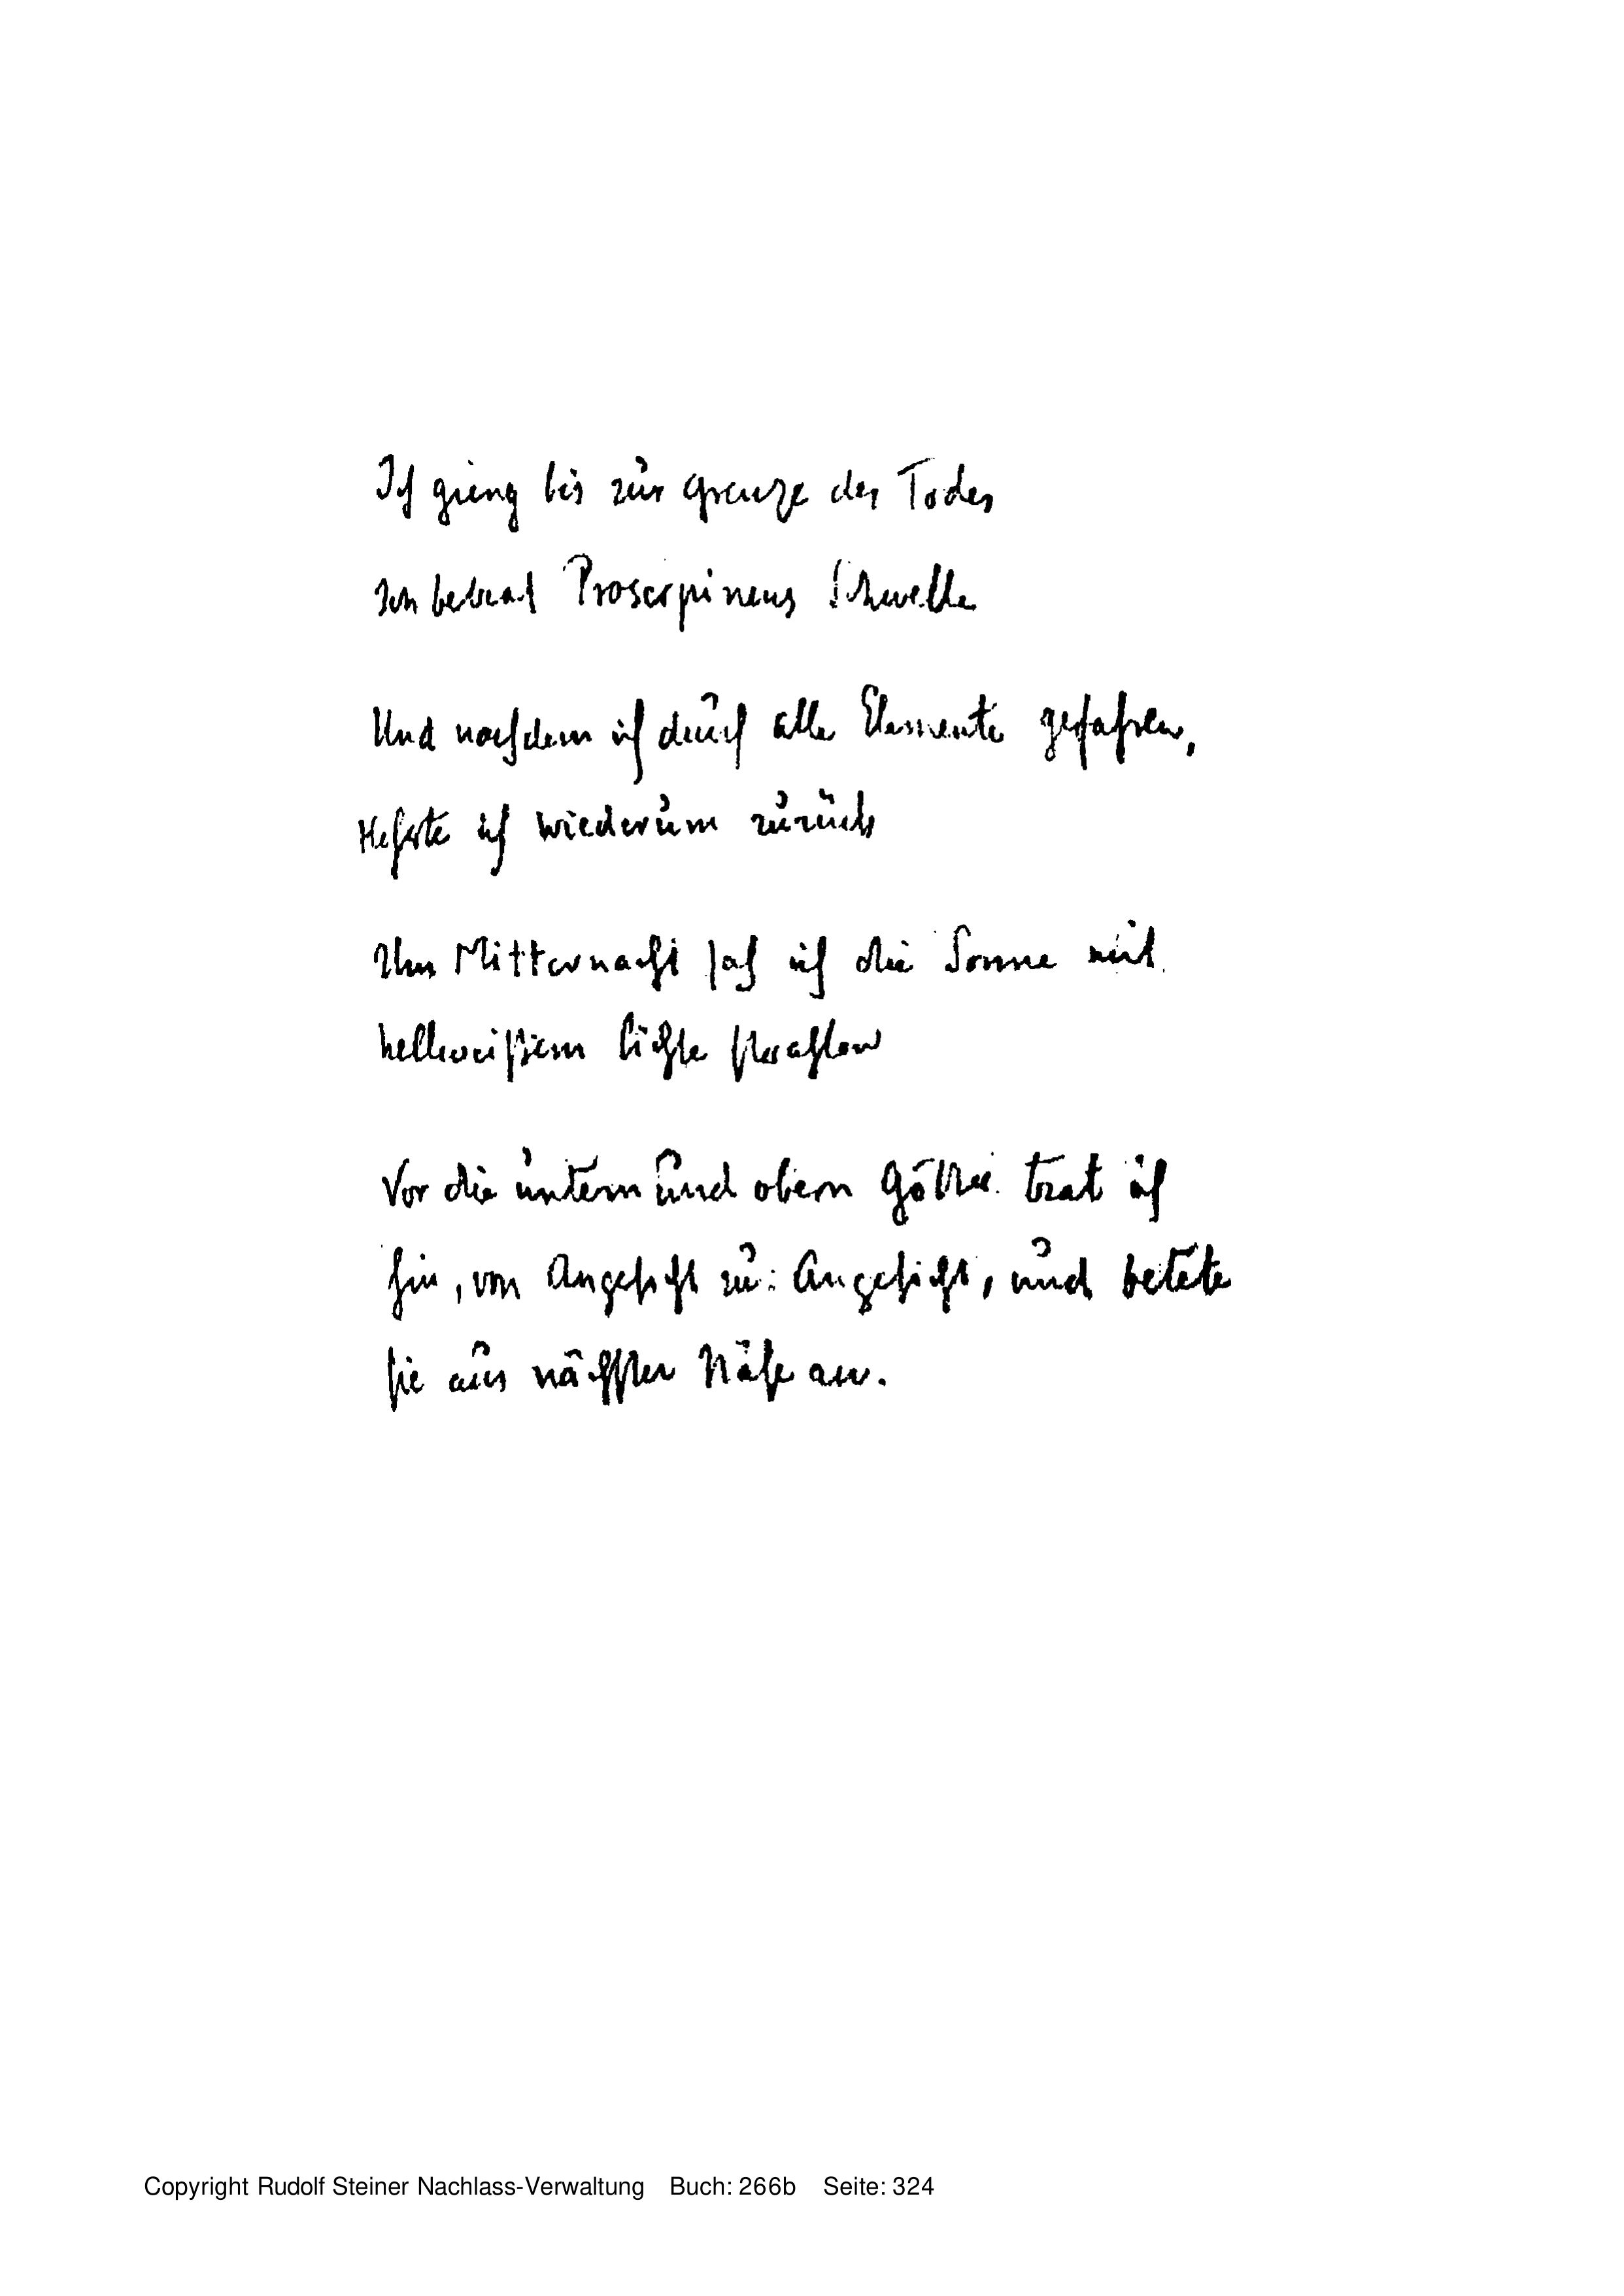 Ich gieng bis zur Grenze des Todes
Ich betrat Proserpinens Schwelle
Und nachdem ich durch alle Elemente gefahren,
Kehrte ich wiederum zurück
Um Mitternacht sah ich die Sonne mit
hellweißem Lichte strahlen
Vor die untern und obern Götter trat ich
hin, von Angesicht zu Angesicht, und betete
sie aus nächster Nähe an.
Copyright Rudolf Steiner Nachlass-Verwaltung Buch: 266b Seite: 324